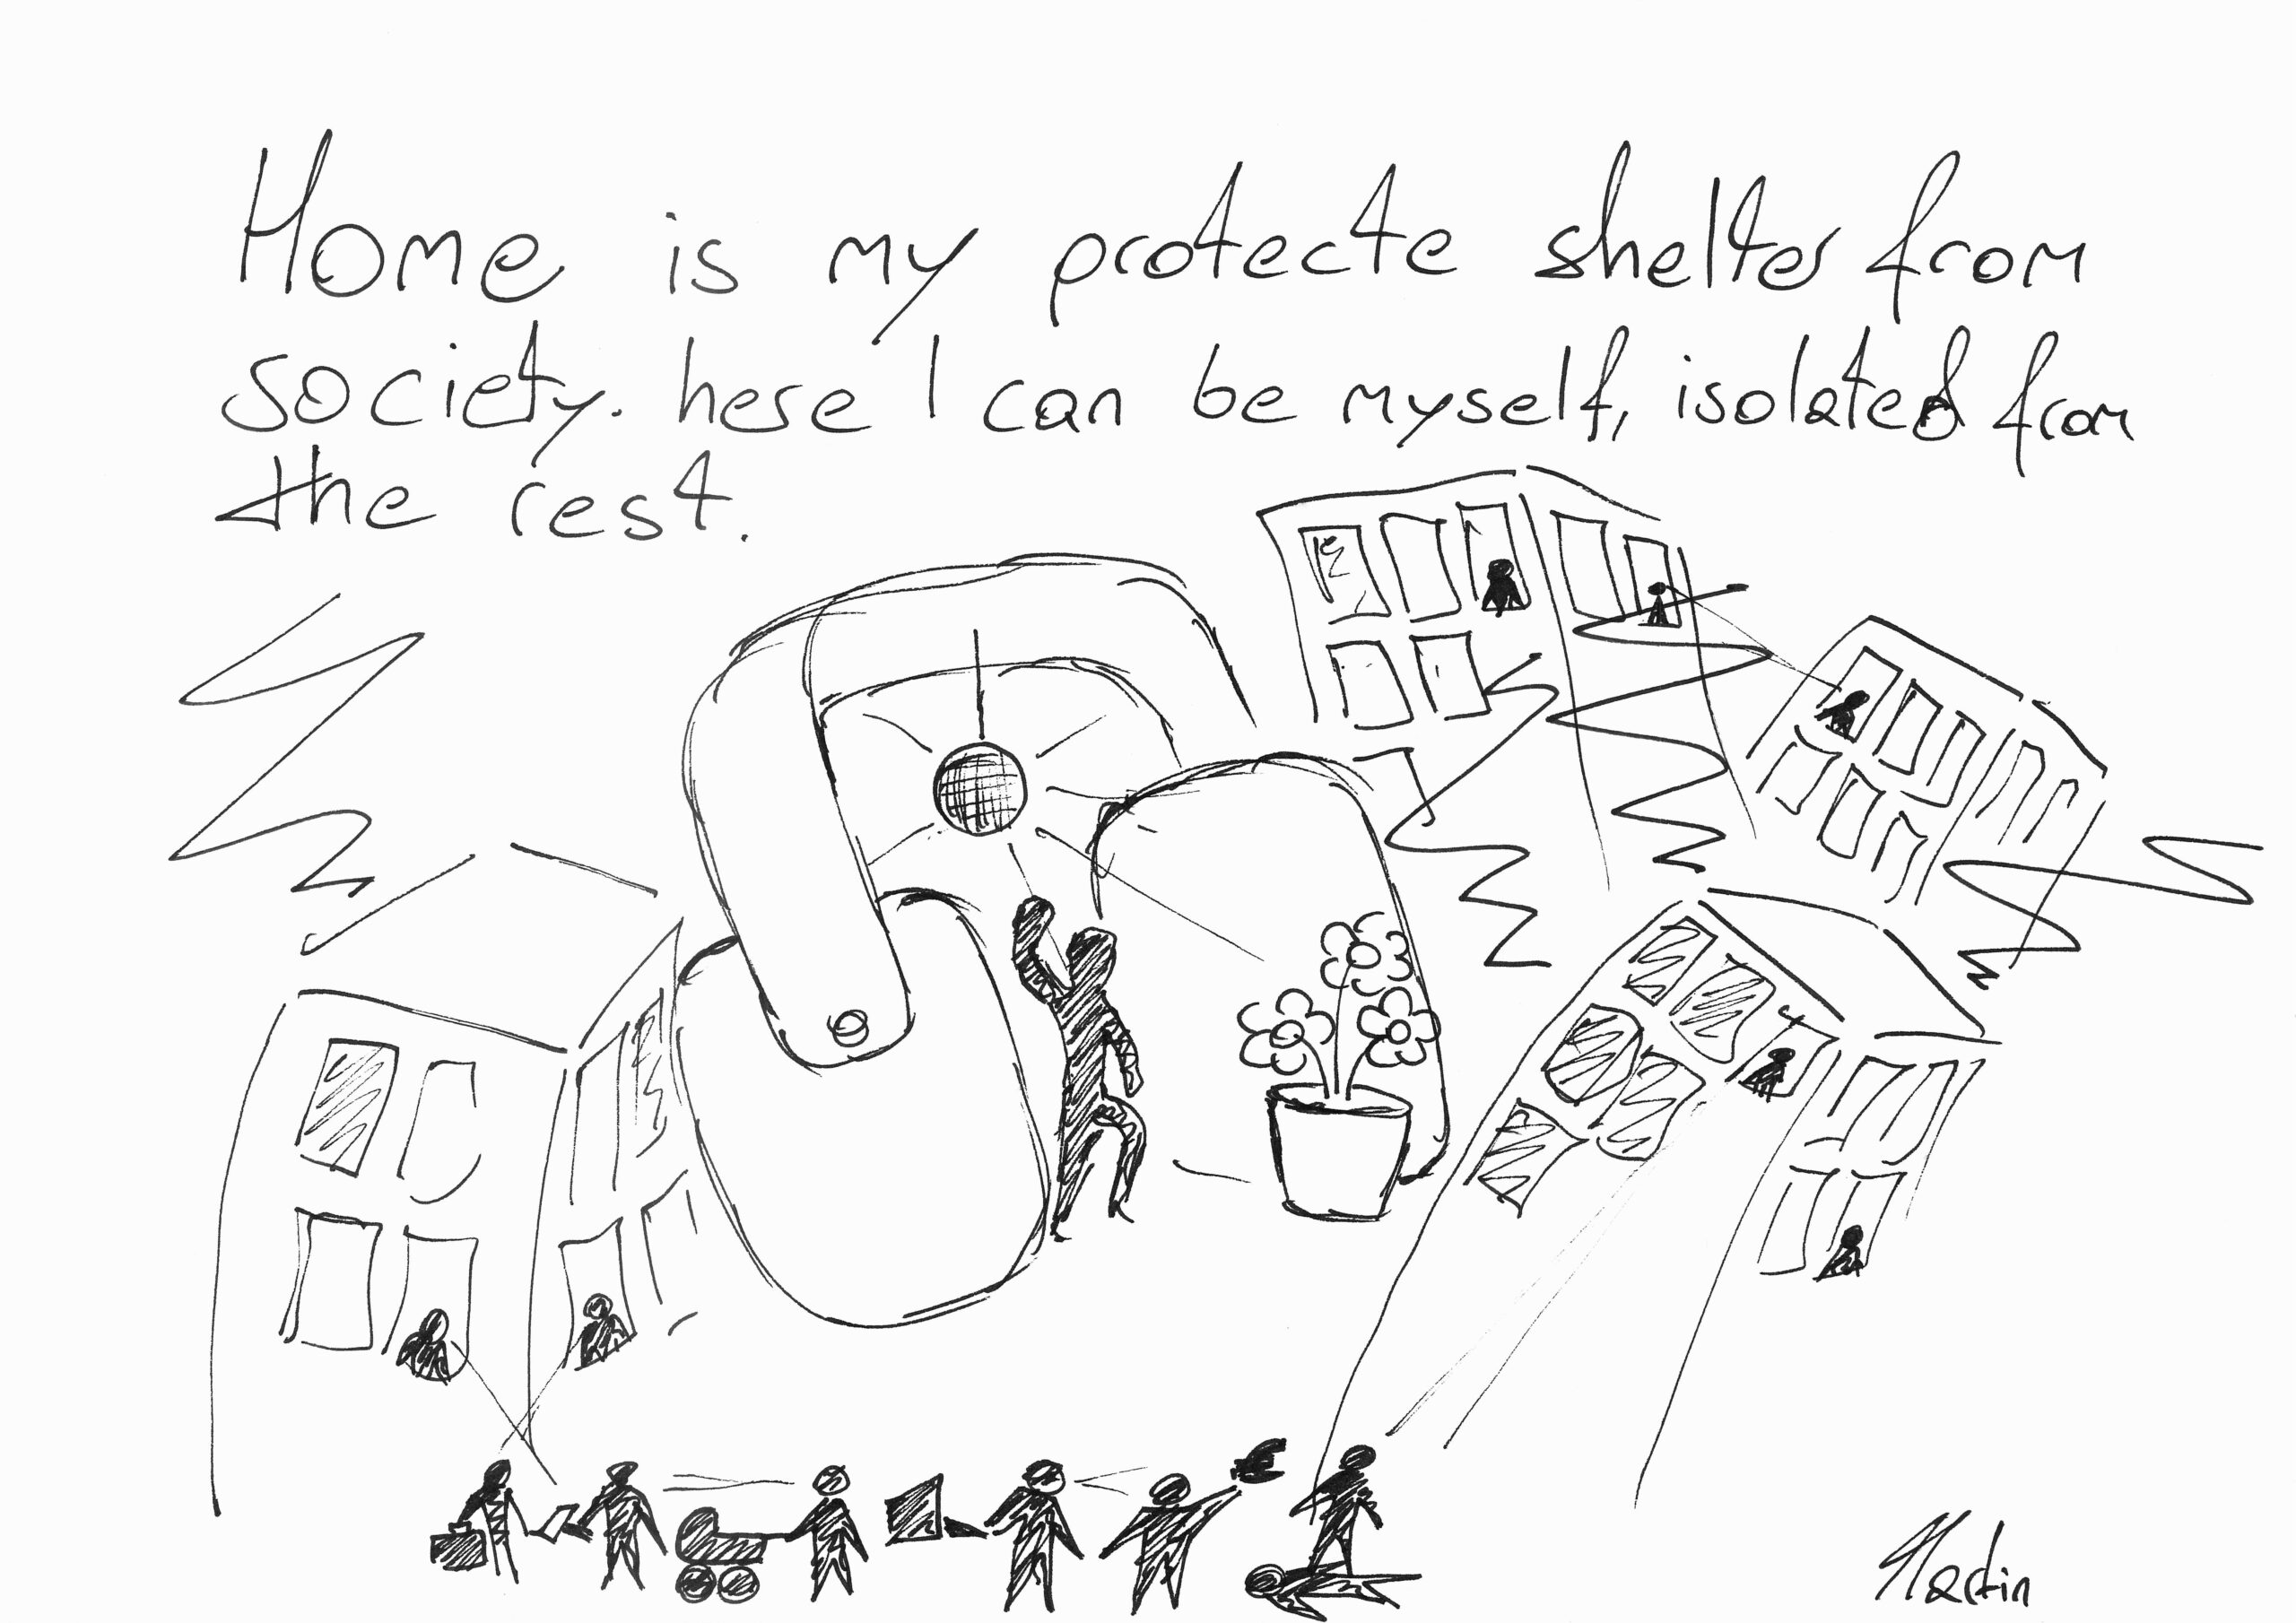 Home is my protecte shelter from
society. here I can be myself, isolated from
the rest.
Martin